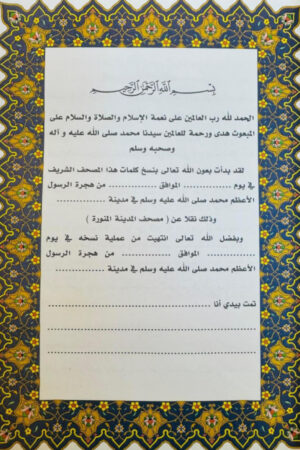 بسم الله الرحمن الرحيم
الحمد لله رب العالمين على نعمة الإسلام والصلاة والسلام على
المبعوث هدى ورحمة للعالمين سيدنا محمد صلى الله عليه و آله
وصحبه وسلم
لقد بدأت بعون الله تعالى بنسخ كلمات هذا المصحف الشريف
في يوم .................... الموافق .................... من هجرة الرسول
الأعظم محمد صلى الله عليه وسلم في مدينة ....................
وذلك نقلا عن ( مصحف المدينة المنورة )
وبفضل الله تعالى انتهيت من عملية نسخه في يوم
.................... الموافق .................... من هجرة الرسول
الأعظم محمد صلى الله عليه وسلم في مدينة ....................
تمت بيدي أنا ....................